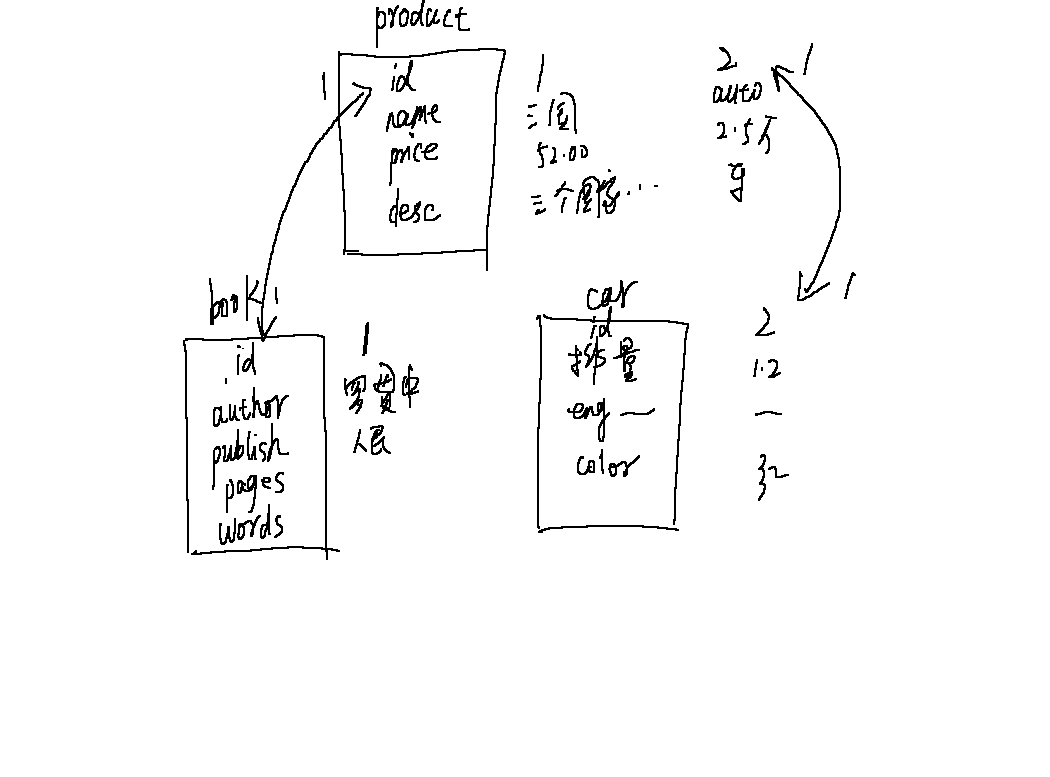 product
1
id
name
price
desc
1
三国
52.00
三个国家...
2
auto
2.5万
1
book
1
id
author
publish
pages
words
1
罗贯中
人民
car
id
排量
eng —
color
1
2
1.2
—